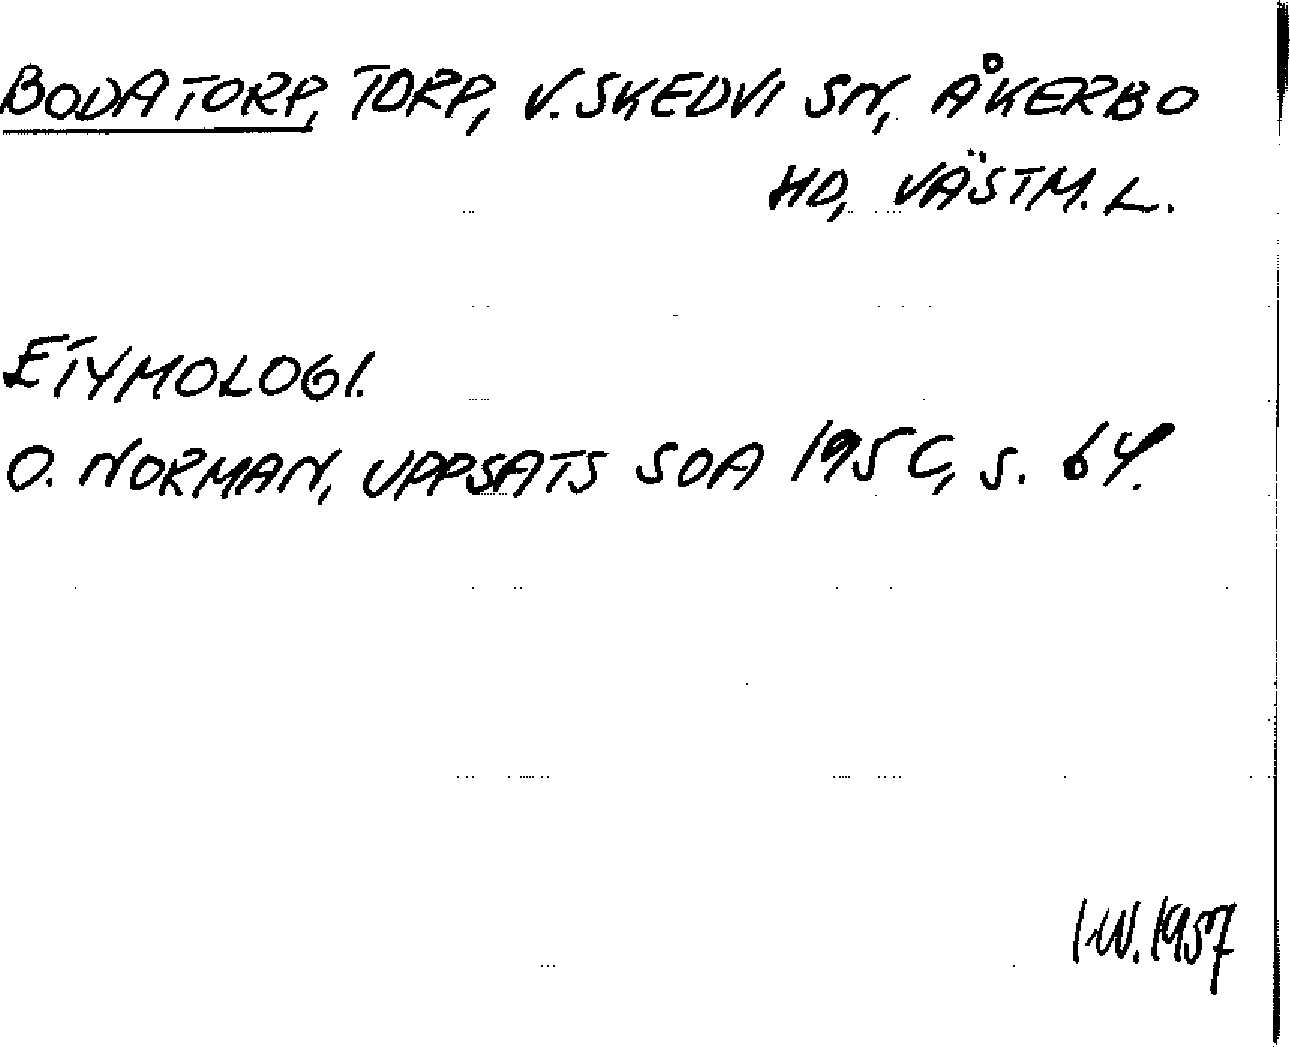 BODATORP, TORP, V. SKEDVI SN, ÅKERBO
HD, VÄSTM. L.
ETYMOLOGI.
O. NORMAN, UPPSATS SOA 1950, S. 64.
1957